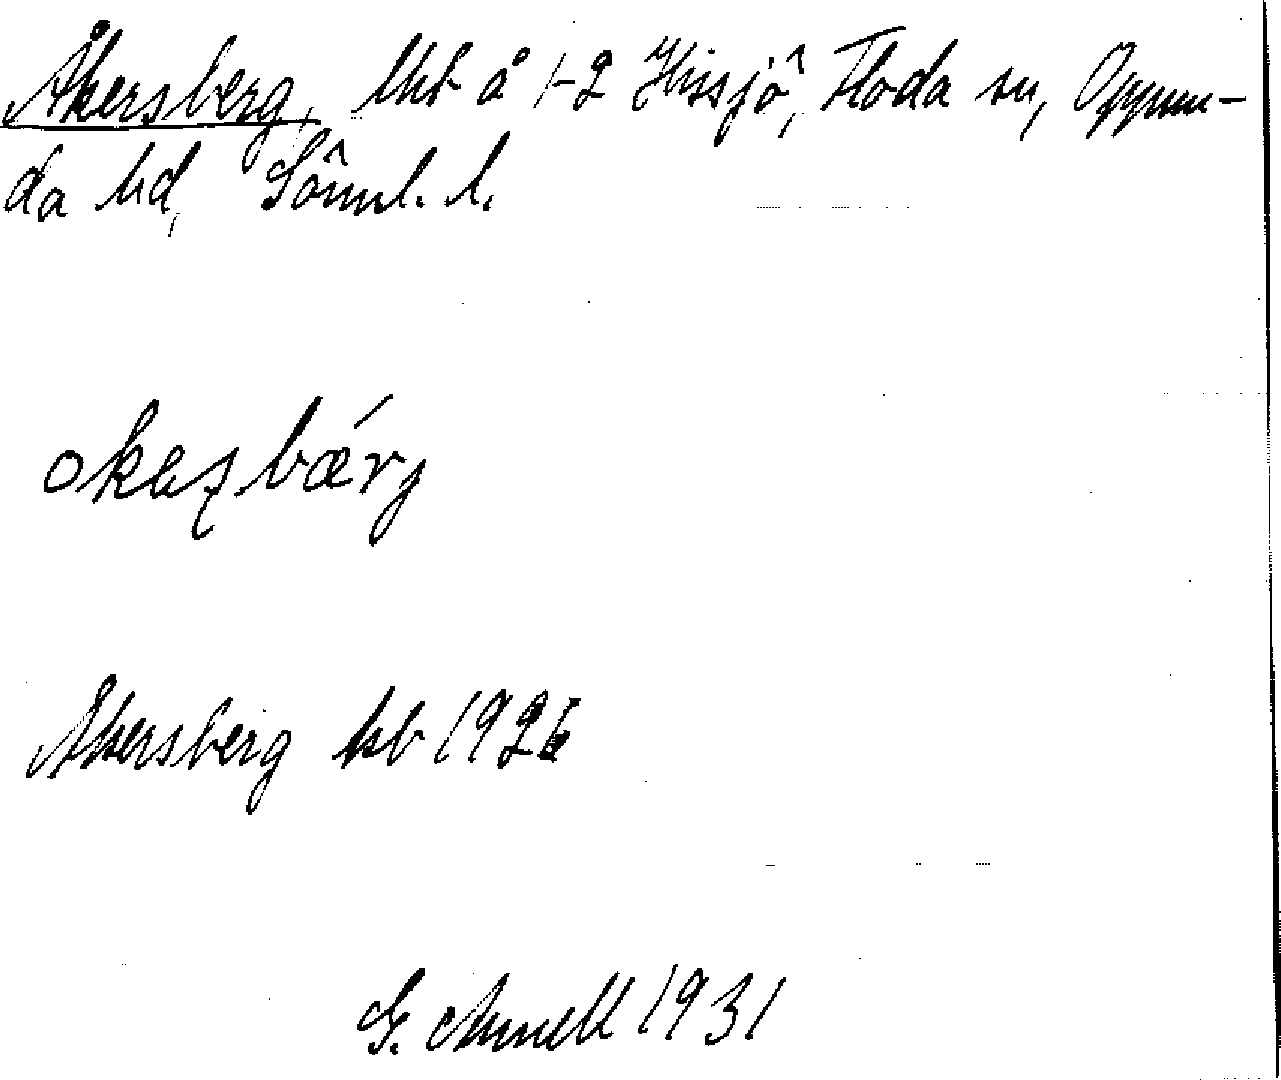 Åkersberg, lht å 1-2 Hissjö, Floda sn, Oppun-
da hd, Söml. l.
okeʂbærj
Åkersberg kb 1926
G. Annell 1931